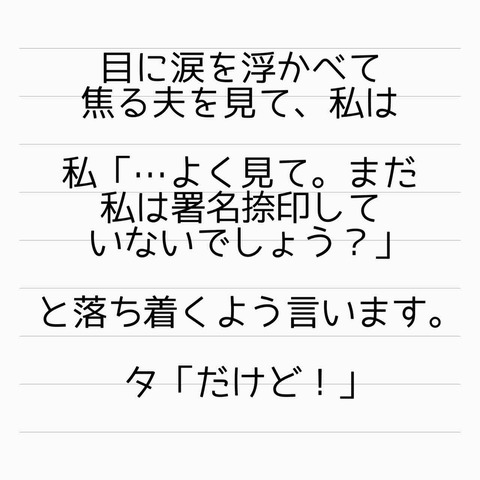 目に涙を浮かべて
焦る夫を見て、私は
私「…よく見て。まだ
私は署名捺印して
いないでしょう？」
と落ち着くよう言います。
タ「だけど！」